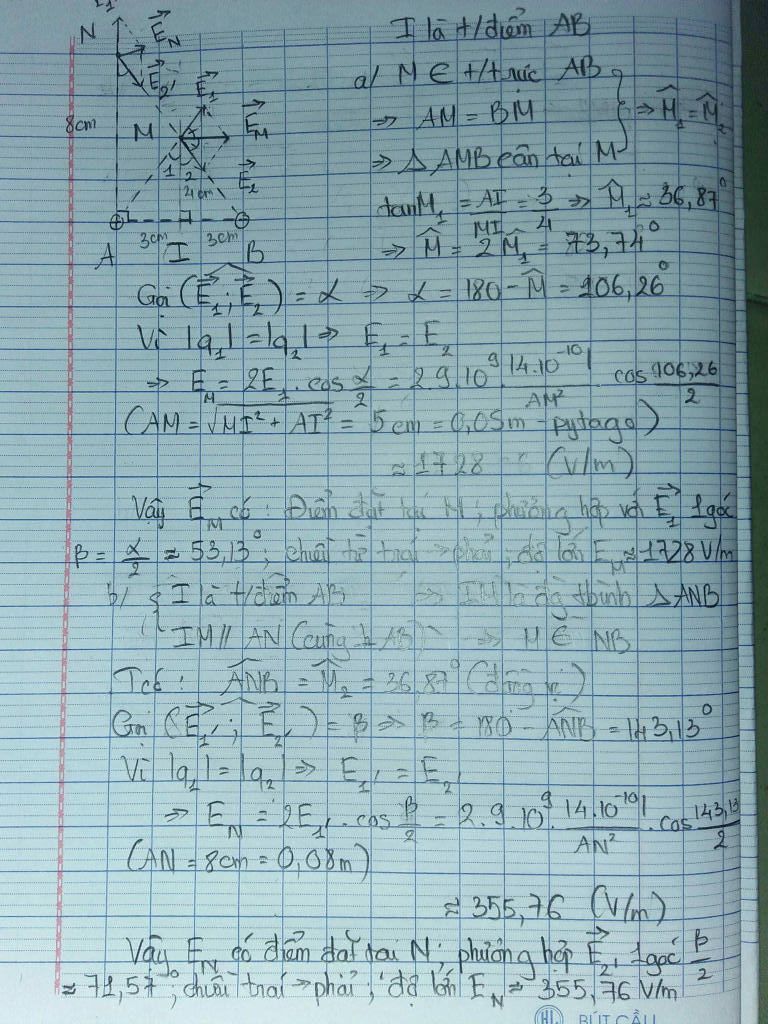 N
E_N
E_2'
E_1
8cm
M
E_M
1 2
4cm
E_2
3cm 3cm
A I B
I là t/điểm AB
a/ M ∈ t/trực AB
⇒ AM = BM
⇒ M̂_1 = M̂_2
⇒ △ AMB cân tại M
tanM_1 = AI/MI = 3/4 ⇒ M̂_1 ≈ 36,87°
⇒ M̂ = 2M̂_1 = 73,74°
Gọi (E_1; E_2) = α ⇒ α = 180 - M̂ = 106,26°
Vì |q_1| = |q_2| ⇒ E_1 = E_2
⇒ E_M = 2E_1 . cos α/2 = 2.9.10^9 . |4.10^-10|/AM² . cos 106,26/2
(AM = √MI² + AI² = 5cm = 0,05m - pytago)
≈ 1728 (V/m)
Vậy E_M có: Điểm đặt tại M; phương hợp với E_1 1 góc
β = α/2 ≈ 53,13°; chiều từ trái → phải; độ lớn E_M ≈ 1728 V/m
b/ { I là t/điểm AB ⇒ IM là đg tbình △ ANB
IM // AN (cùng ⊥ AB) ⇒ M ∈ NB
Tcó: ANB = M̂_2 = 36,87° (đồng vị)
Gọi (E_1'; E_2') = β ⇒ β = 180 - ANB = 143,13°
Vì |q_1| = |q_2| ⇒ E_1' = E_2'
⇒ E_N = 2E_1' . cos β/2 = 2.9.10^9 . |4.10^-10|/AN² . cos 143,13/2
(AN = 8cm = 0,08m)
≈ 355,76 (V/m)
Vậy E_N có điểm đặt tại N; phương hợp E_2' 1 góc β/2
≈ 71,57°; chiều trái → phải; độ lớn E_N ≈ 355,76 V/m
HL BÚT CẦU